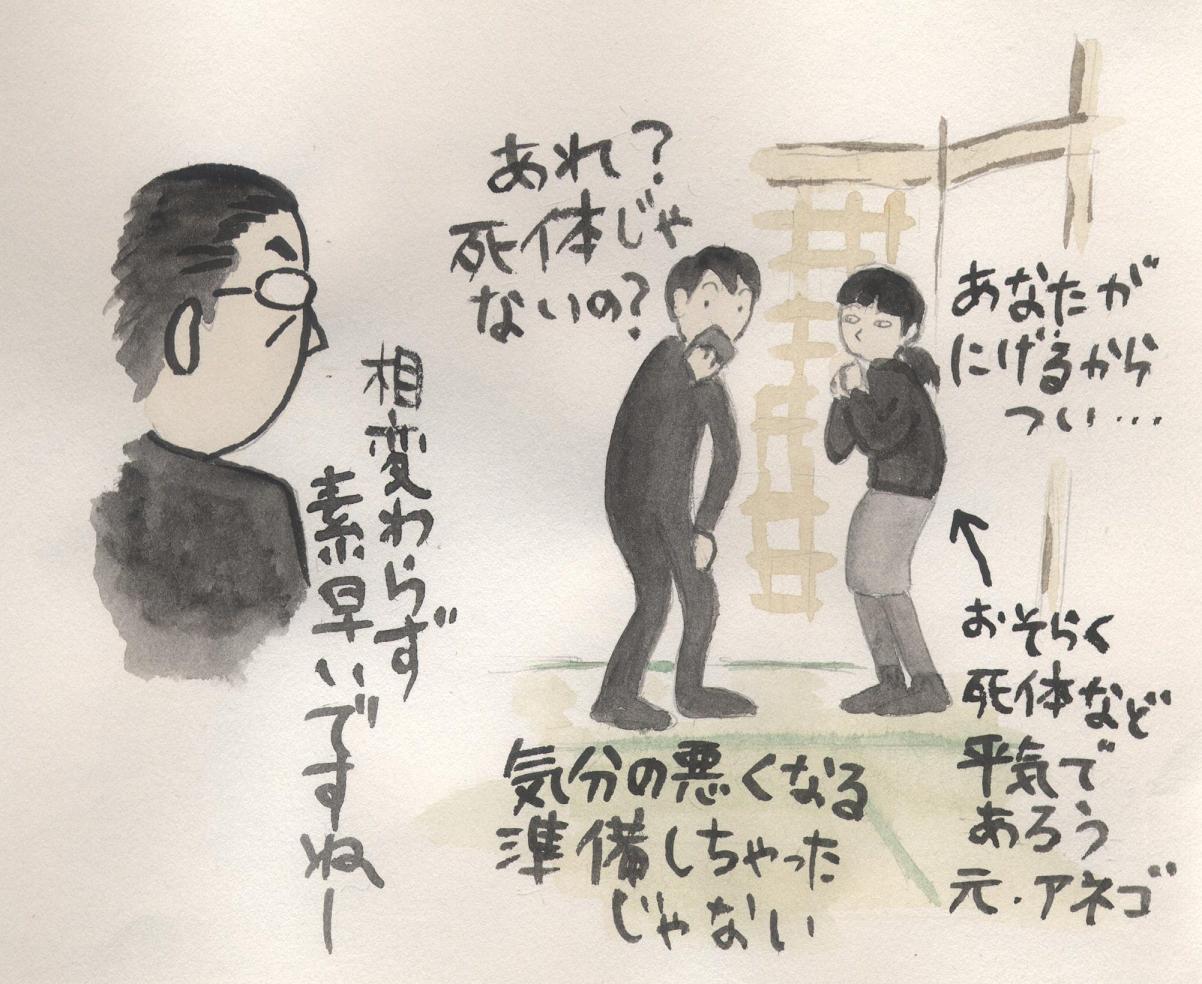 あれ?
死体じゃ
ないの?
あなたが
にげるから
つい…
相変わらず
素早いですねー
おそらく
死体など
平気で
あろう
元・アネゴ
気分の悪くなる
準備しちゃった
じゃない